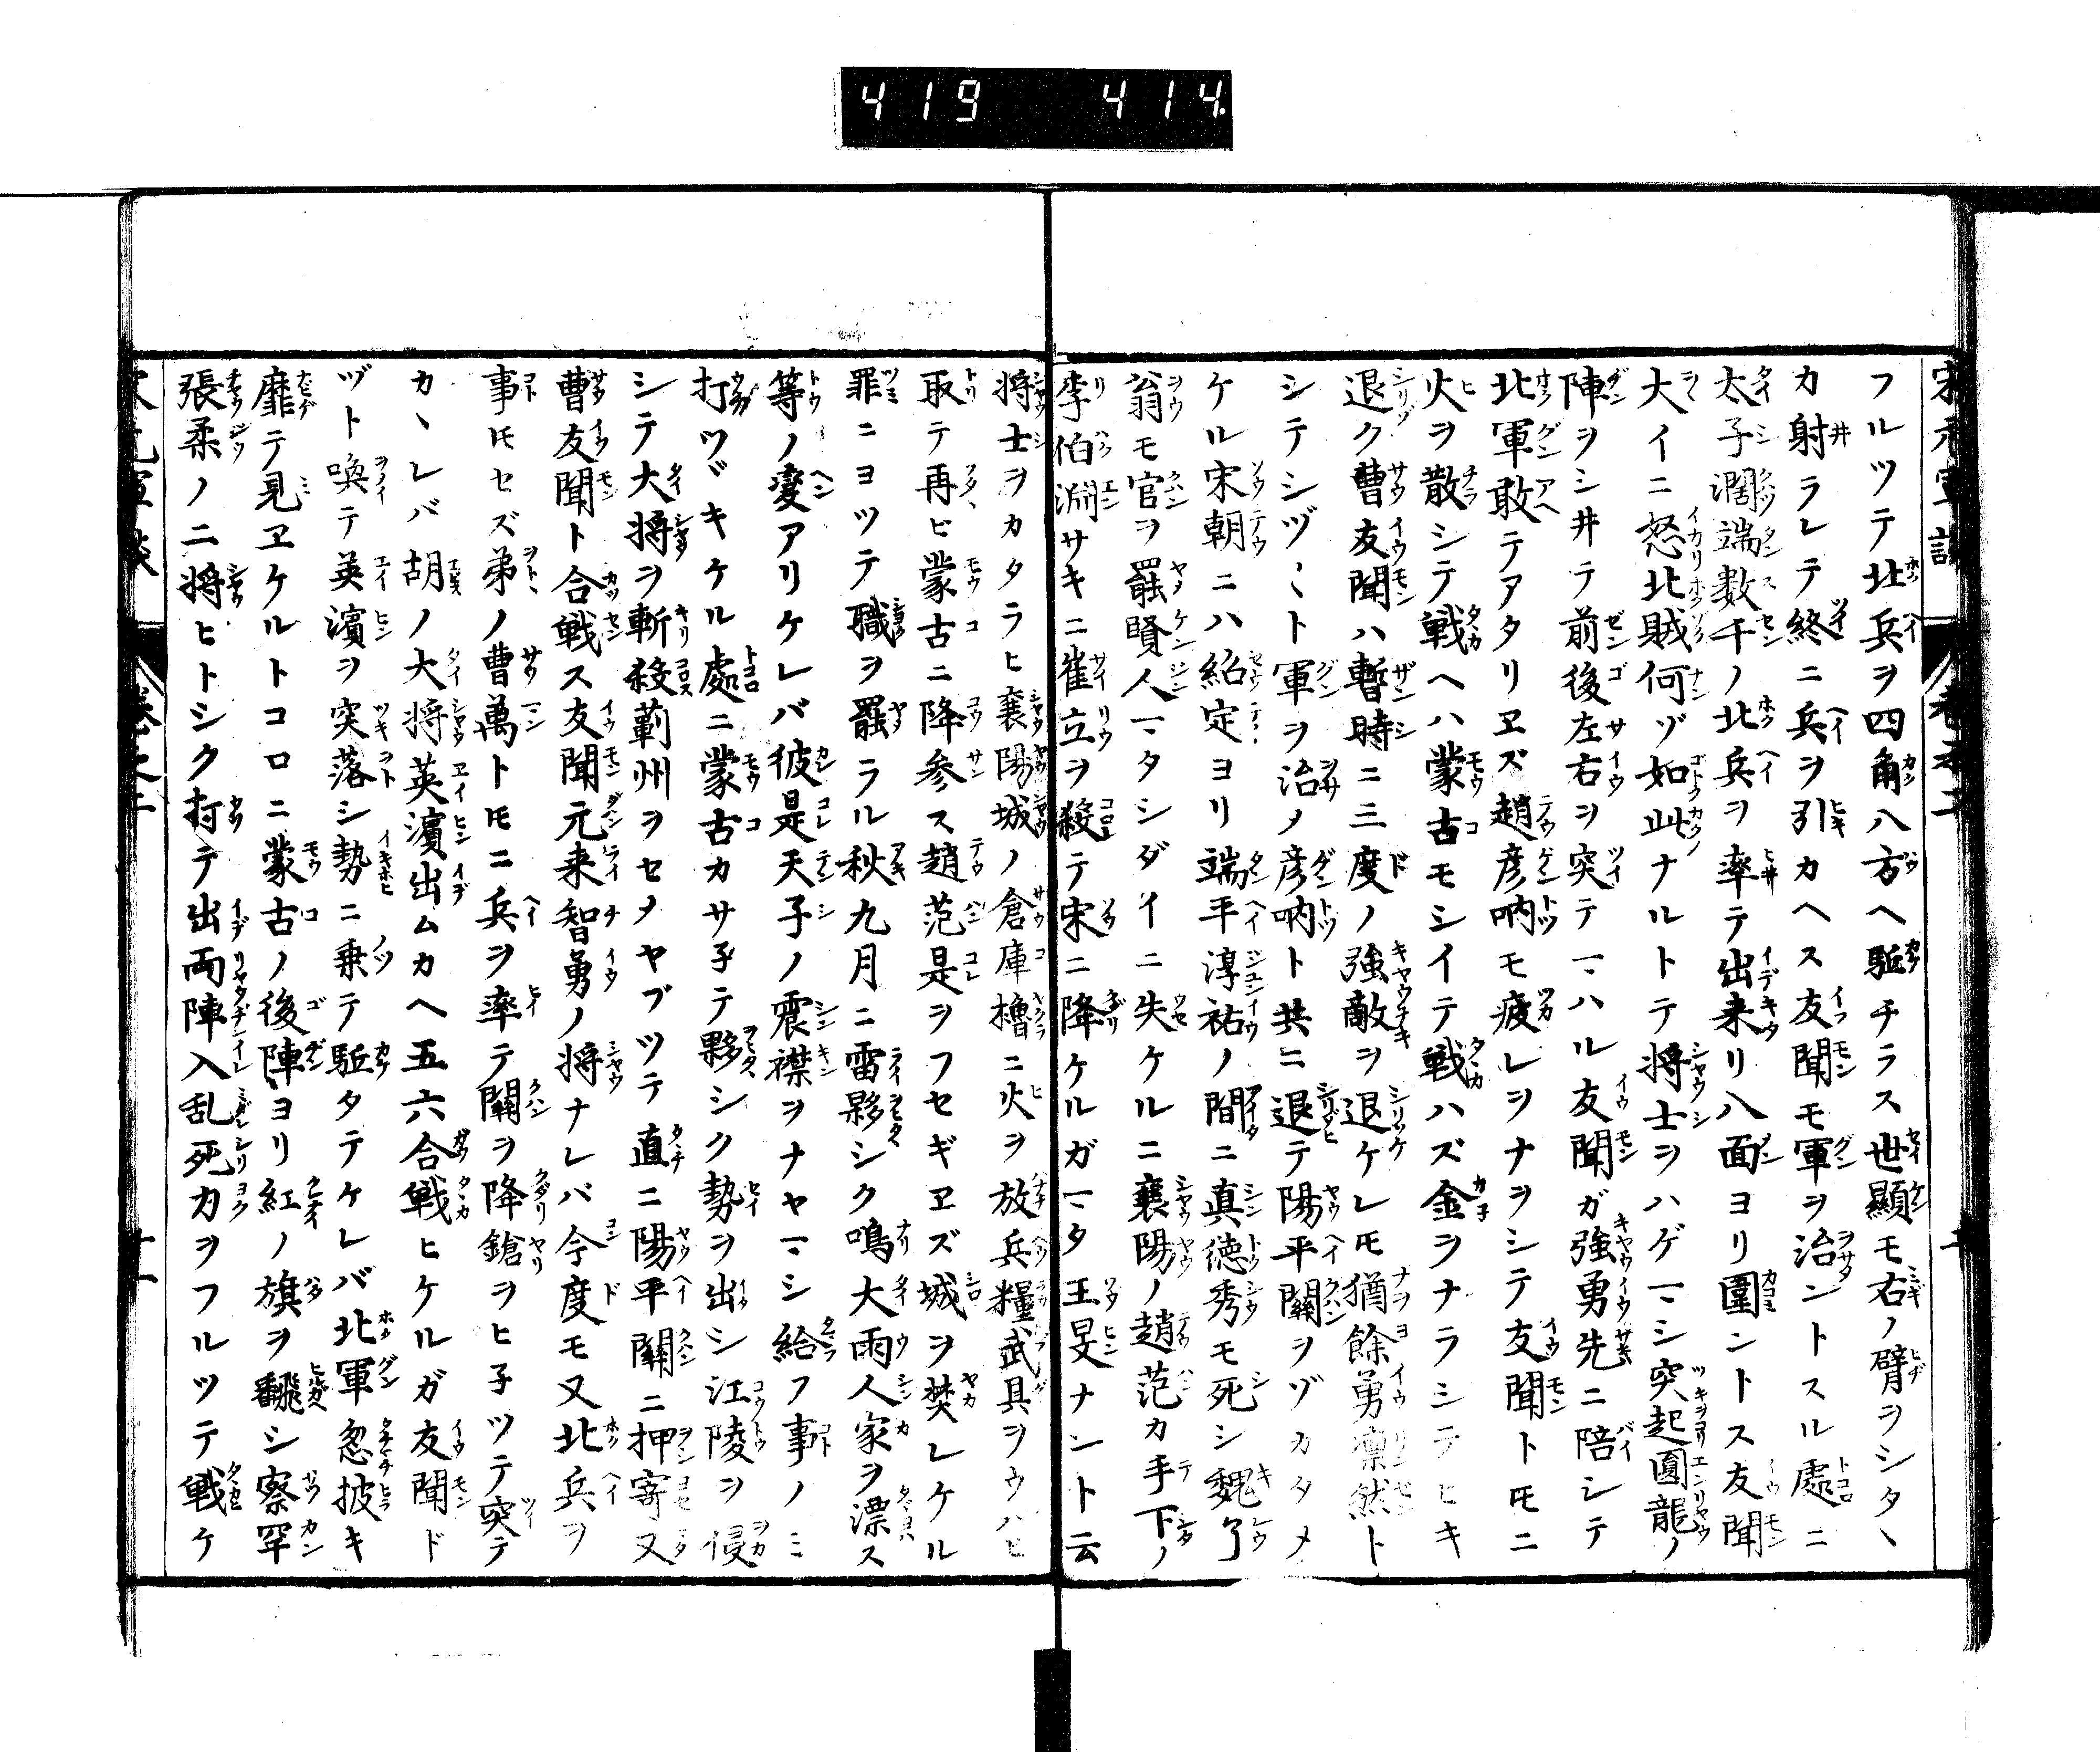 419 414
フルツテ北兵ヲ四角八方ヘ駈チラス世顯モ右ノ臂ヲシタヽ
カ射ラレテ終ニ兵ヲ引カヘス友聞モ軍ヲ治ントスル處ニ
太子濶端数千ノ北兵ヲ率テ出来リ八面ヨリ圍ントス友聞
大イニ怒北賊何ゾ如此ナルトテ将士ヲハゲマシ突起圓龍ノ
陣ヲシ井テ前後左右ヲ突テマハル友聞ガ強勇先ニ陪シテ
北軍敢テアタリヱズ趙彦吶モ疲レヲナヲシテ友聞トモニ
火ヲ散シテ戦ヘハ蒙古モシイテ戦ハズ金ヲナラシテヒキ
退ク曹友聞ハ暫時ニ三度ノ強敵ヲ退ケレ𪜈猶餘勇凛然ト
シテシヅヽト軍ヲ治ノ彦吶ト共ニ退テ陽平關ヲゾカタメ
ケル宋朝ニハ紹定ヨリ端平淳祐ノ間ニ真徳秀モ死シ魏了
翁モ官ヲ罷賢人マタシダイニ失ケルニ襄陽ノ趙范カ手下ノ
李伯淵サキニ崔立ヲ殺テ宋ニ降ケルガマタ王旻ナント云
将士ヲカタラヒ襄陽城ノ倉庫櫓ニ火ヲ放兵糧武具ヲウハヒ
取テ再ヒ蒙古ニ降参ス趙范是ヲフセギヱズ城ヲ焚レケル
罪ニヨツテ職ヲ罷ラル秋九月ニ雷夥シク鳴大雨人家ヲ漂ス
等ノ変アリケレバ彼是天子ノ震襟ヲナヤマシ給フ事ノミ
打ツヾキケル處ニ蒙古カサ子テ夥シク勢ヲ出シ江陵ヲ侵
シテ大将ヲ斬殺蔪州ヲセメヤブツテ直ニ陽平關ニ押寄又
曹友聞ト合戦ス友聞元来智勇ノ将ナレバ今度モ又北兵ヲ
事𪜈セズ弟ノ曹萬ト𪜈ニ兵ヲ率テ關ヲ降鎗ヲヒ子ツテ突テ
カヽレバ胡ノ大将英濵出ムカヘ五六合戦ヒケルガ友聞ド
ヅト喚テ英濵ヲ突落シ勢ニ乗テ駈タテケレバ北軍忽披キ
靡テ見ヱケルトコロニ蒙古ノ後陣ヨリ紅ノ旗ヲ飜シ察罕
張柔ノ二将ヒトシク打テ出両陣入乱死力ヲフルツテ戦ケ